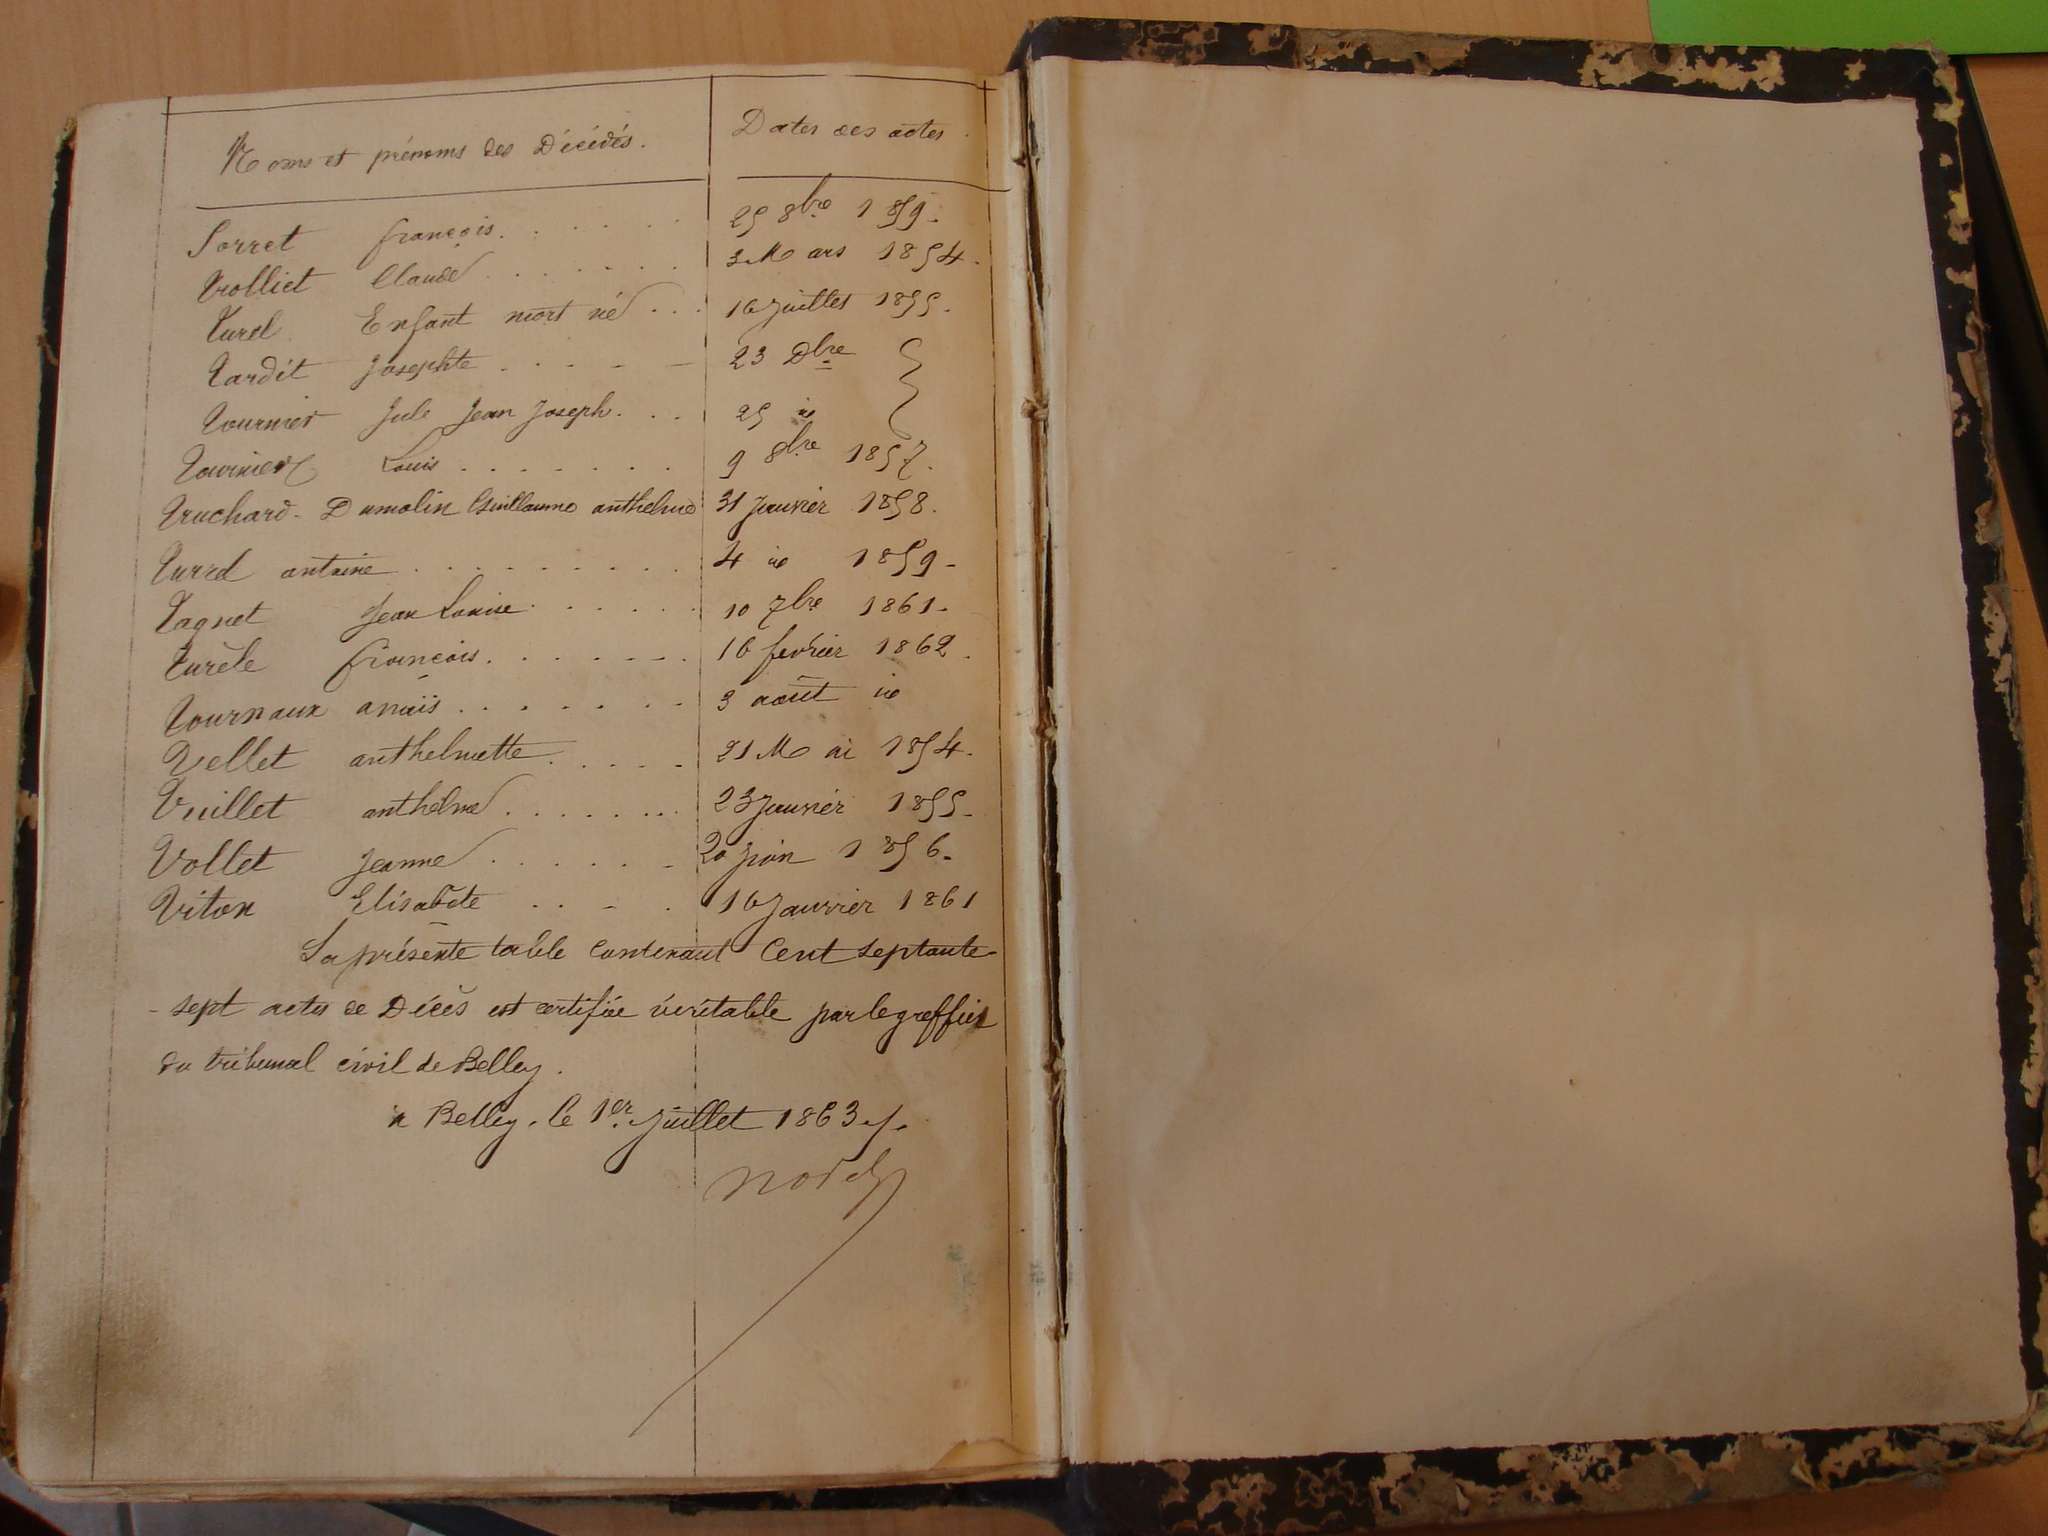 Noms et prénoms des Décédés. Dates des actes.
Sorret françois. 25 8bre 1859.
Trolliet Claude 3 Mars 1854.
Turel Enfant mort né 16 juillet 1855.
Tardit Josephte 23 Dbre
Tournier Jule Jean Joseph. 25 id
Tournier Louis 9 8bre 1857.
Truchard-Dumolin Guillaume anthelme 31 janvier 1858.
Turrel antoine 4 id 1859.
Tagnet Jean Louise 10 7bre 1861.
Turèle françois. 16 fevrier 1862.
Tournaux anaïs 3 août id
Vellet anthelmette 21 Mai 1854.
Vuillet anthelme 23 Janvier 1855.
Vollet Jeanne 20 Juin 1856.
Viton Elisabete 16 Janvier 1861
La présente table contenant Cent septante-
- sept actes de Décès est certifiée véritable par le greffier
du tribunal civil de Belley.
a Belley. le 1er Juillet 1863